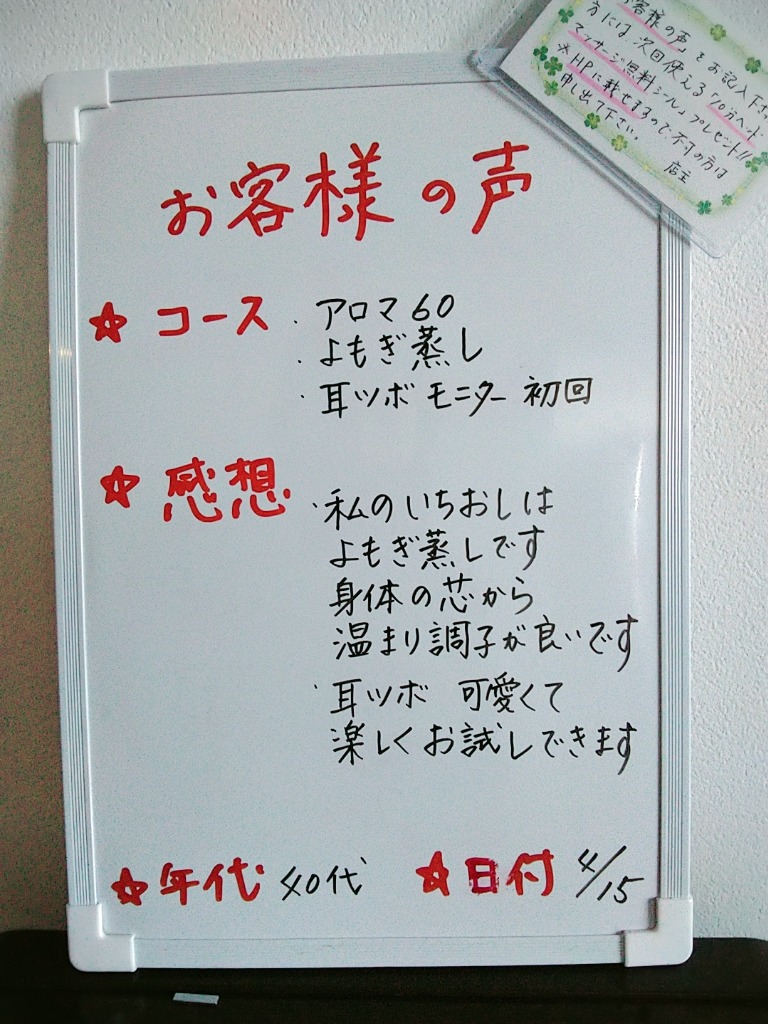 お客様の声」をお記入下さ
方には次回使える「10分ヘッド
マッサージ無料シール」プレゼント!!
※HPに載せますので不可の方は
申し出て下さい。
店主
お客様の声
☆コース
・アロマ60
・よもぎ蒸し
・耳ツボモニター 初回
☆感想
・私のいちおしは
よもぎ蒸しです
身体の芯から
温まり調子が良いです
・耳ツボ 可愛くて
楽しくお試しできます
☆年代 40代
☆日付 4/15